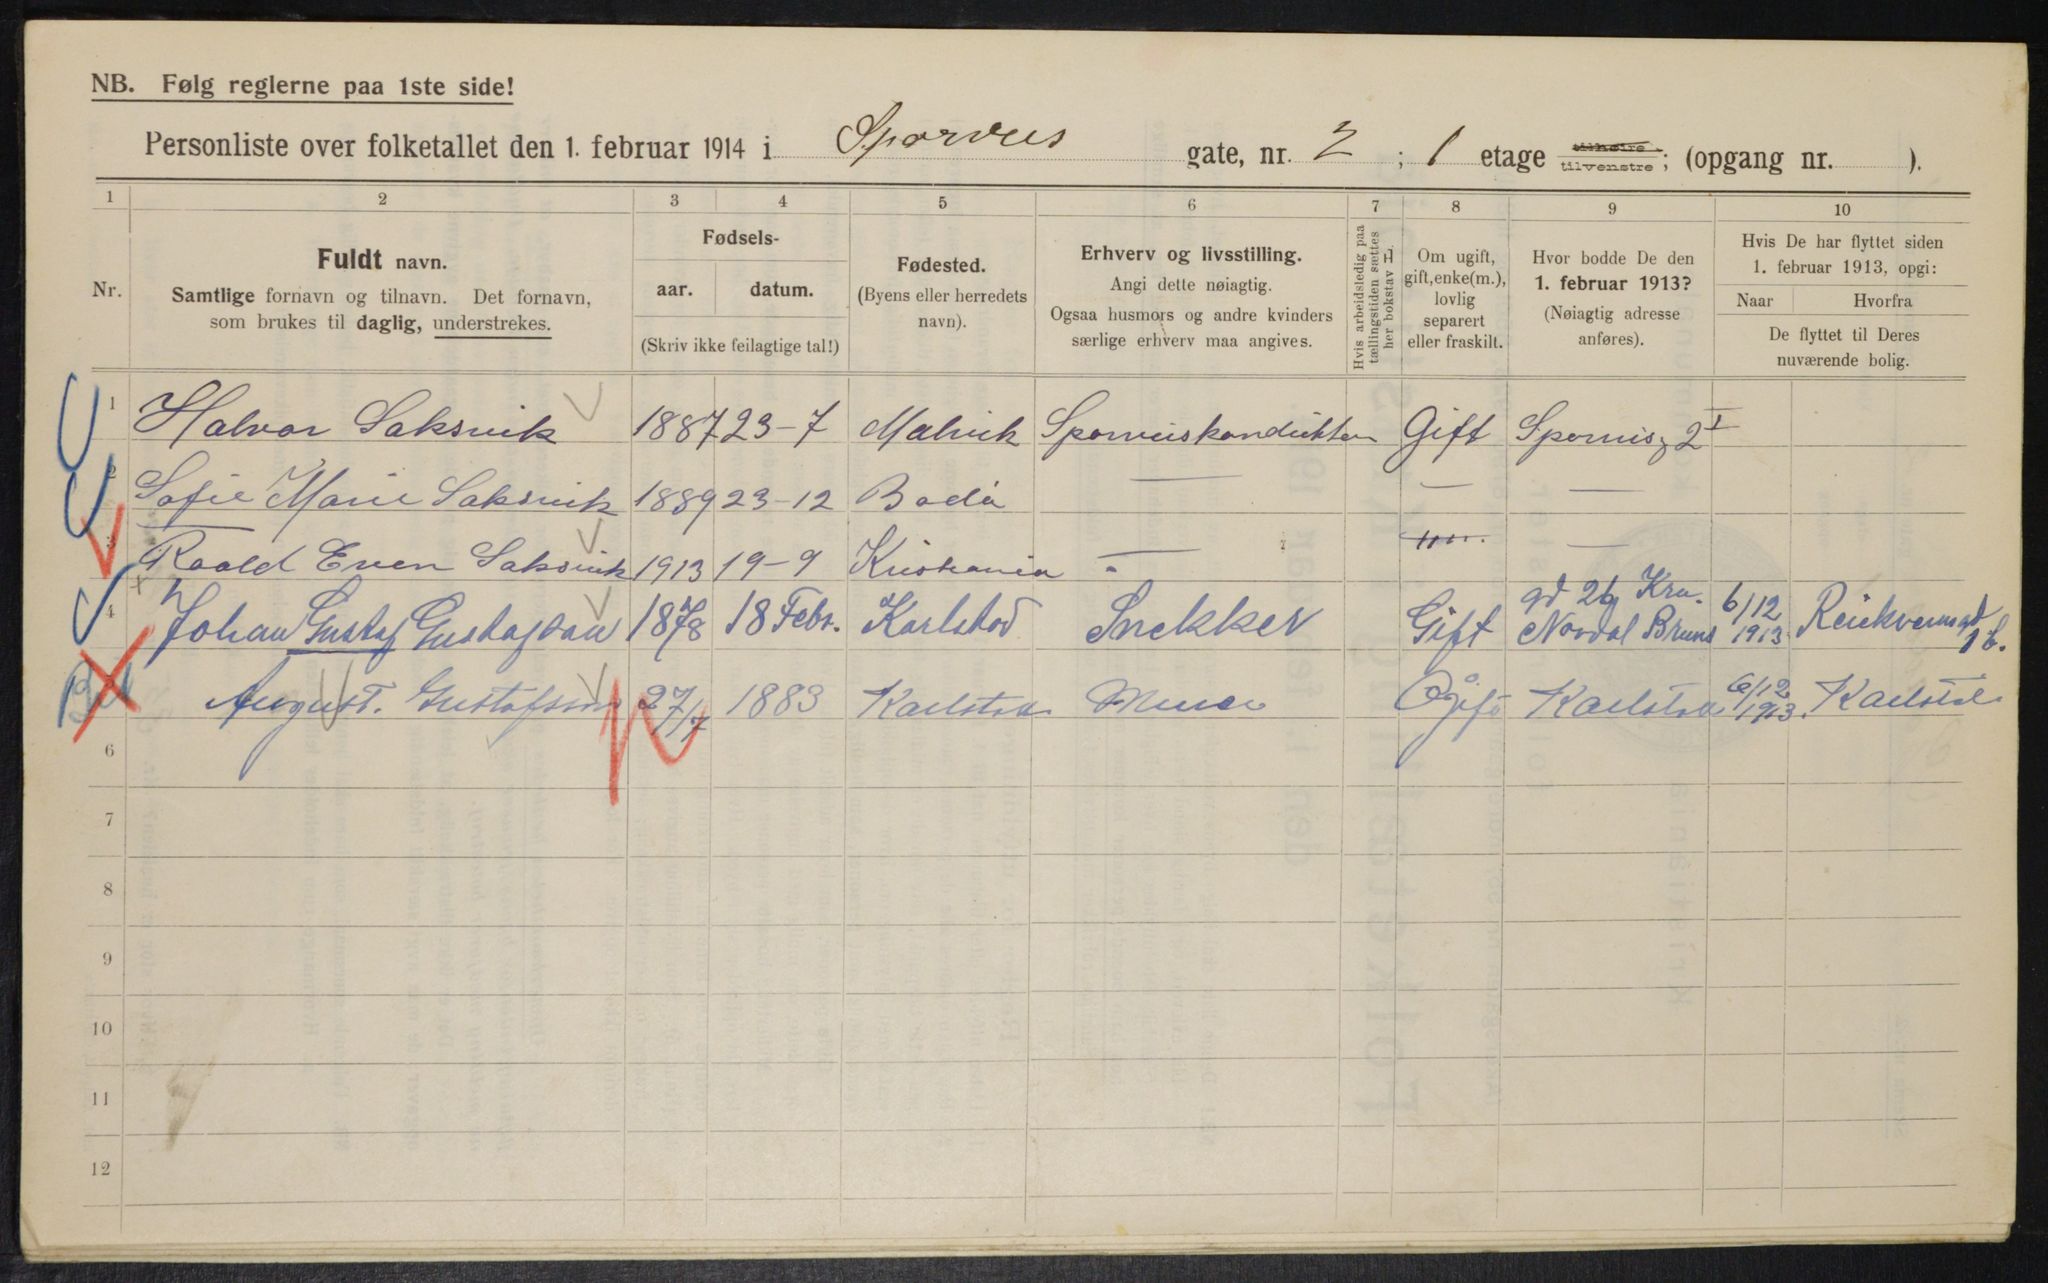 NB. Følg reglerne paa 1ste side!
Personliste over folketallet den 1. februar 1914 i Sporveis gate, nr. 2 ; 1 etage tilhøire tilvenstre ; (opgang nr. ).
1 2 3 4 5 6 7 8 9 10
Nr.
Fuldt navn.
Samtlige fornavn og tilnavn. Det fornavn,
som brukes til daglig, understrekes.
Fødsels-
aar. datum.
(Skriv ikke feilagtige tal!)
Fødested.
(Byens eller herredets
navn).
Erhverv og livsstilling.
Angi dette nøiagtig.
Ogsaa husmors og andre kvinders
særlige erhverv maa angives.
Hvis arbeidsledig paa
tællingstiden sættes
her bokstav L.
Om ugift,
gift, enke(m.),
lovlig
separert
eller fraskilt.
Hvor bodde De den
1. februar 1913?
(Nøiagtig adresse
anføres).
Hvis De har flyttet siden
1. februar 1913, opgi:
Naar Hvorfra
De flyttet til Deres
nuværende bolig.
1 Halvor Saksvik 1887 23-7 Malvik Sporveiskonduktør Gift Sporveisg 2 I
2 Sofie Marie Saksvik 1889 23-12 Bodø — — —
3 Roald Even Saksvik 1913 19-9 Kristiania — —
4 Johan Gustaf Gustafsson 1878 18 Febr. Karlstad Snekker Gift Nordal Bruns gd 26 Kra. 6/12 1913 16.
August Gustafsson 27/7 1883 Karlstad Murer Ogift Karlstad 6/12 1913. Karlstad
6
7
8
9
10
11
12